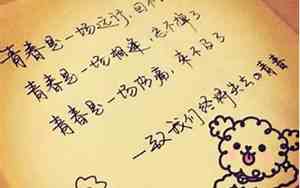 青春是一场远行 回不
青春是一场相逢,忘不掉了
青春是一场伤痛,来不及了
—致我们终将失去の青春